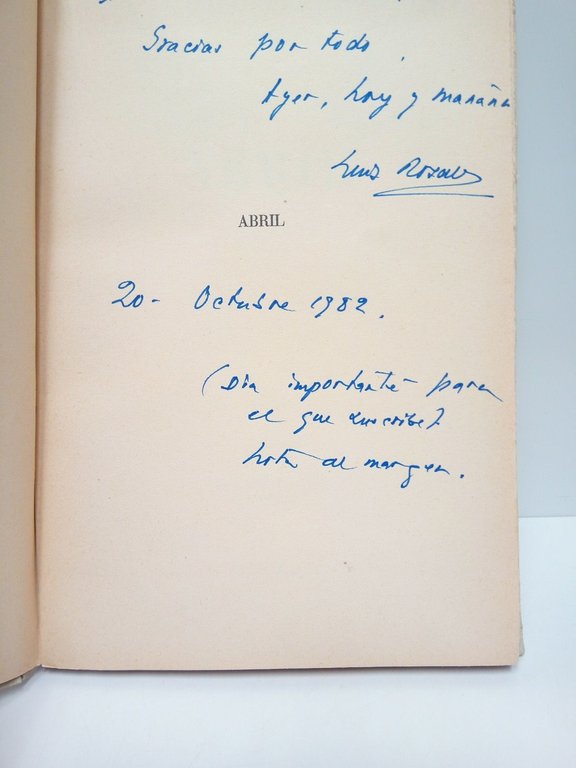 Gracias por todo.
Ayer, hoy y mañana
Luis Rosales
ABRIL
20- Octubre 1982.
(Dia importante para
el que suscribe)
Nota al margen.